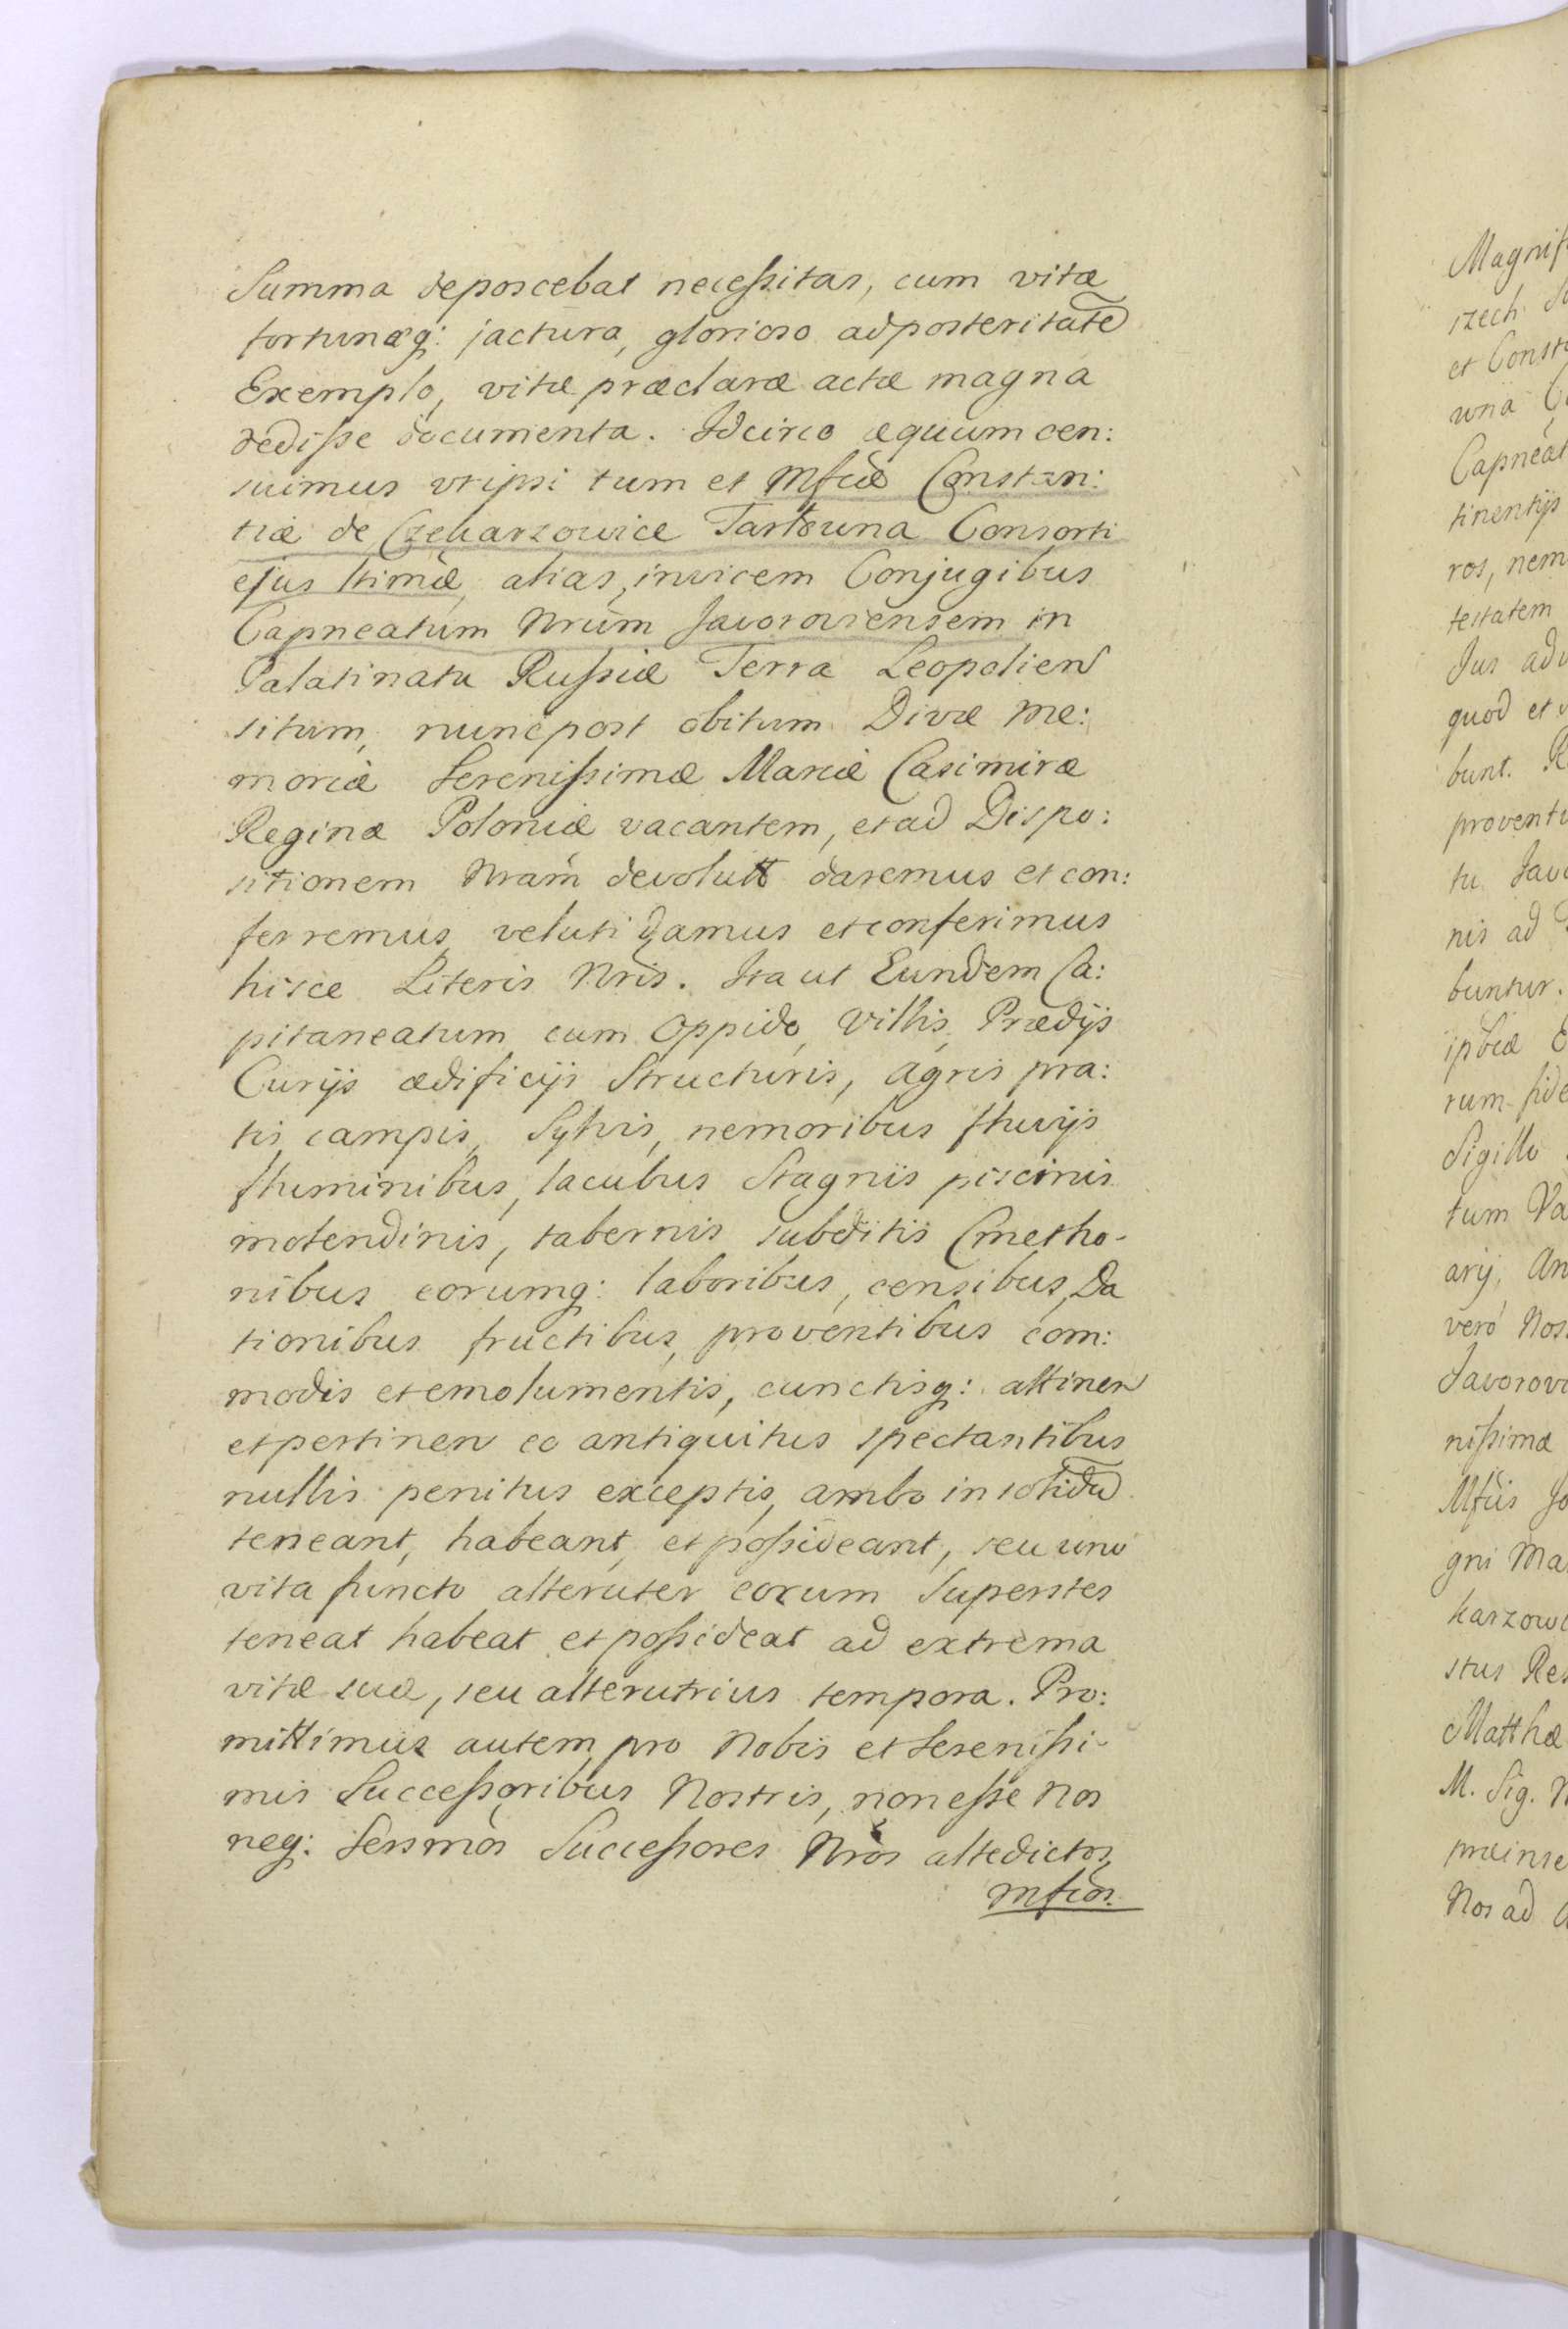 Summa deposcebat necessitas, cum vitæ
fortunæq: jactura, glorioso ad posteritatē
Exemplo, vitæ præclaræ actæ magna
dedisse documenta. Idcirco æquum cen:
suimus vt ipsi tum et Mfcæ Constan:
tiæ de Czekarzowice Tarłouna Consorti
ejus ltimæ, alias, invicem Conjugibus
Capneatum Nrum Javoroviensem in
Palatinatu Russiæ Terra Leopolien
situm, nunc post obitum Divæ Me:
moriæ Serenissimæ Mariæ Casimiræ
Reginæ Poloniæ vacantem, et ad Dispo:
sitionem Nram devolutt daremus et con:
ferremus, veluti damus et conferimus
hisce Literis Nris. Ita ut Eundem Ca:
pitaneatum cum Oppido, Villis, Prædijs
Curijs ædificijs Structuris, agris pra:
tis, campis, Sylvis, nemoribus fluvijs
fluminibus, lacubus Stagnis piscinis
molendinis, tabernis subditis Cmetho-
nibus eorumq: laboribus, censibus, Da
tionibus fructibus, proventibus com:
modis et emolumentis, cunctisq: attinen
et pertinen eo antiquitus spectantibus
nullis penitus exceptis, ambo in solidū
teneant, habeant, et possideant, seu uno
vita functo alteruter eorum Superstes
teneat habeat et possideat ad extrema
vitæ suæ, seu alterutrius tempora. Pro:
mittimus autem pro Nobis et Serenissi-
mis Successoribus Nostris, non esse Nos
neq: Sersmos Successores Nros altedictos
Mfcos.
Magnif
szech
et Const
una
Capneat
tinentijs
ros, nem
testatem
Jus adv
quod et
bunt.
proventu
tu Javo
nis ad
buntur.
rum fide
Sigillo
tum Va
arij, An
vero Nos
Javorovi
nissimæ
Mfcis Jo
gni Ma
karzowi
stus Re
Matthæ
M. Sig. N
præinse
Nos ad